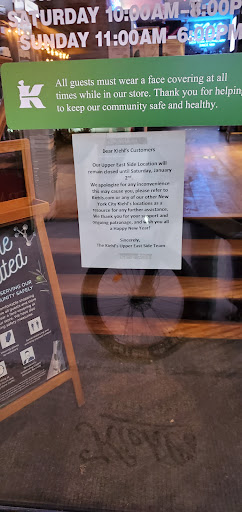 SATURDAY 10:00AM-8:00P
SUNDAY 11:00AM-6:00PM
K
All guests must wear a face covering at all
times while in our store. Thank you for helping
to keep our community safe and healthy.
Dear Kiehl's Customers
Our Upper East Side Location will
remain closed until Saturday, January
2nd.
We apologize for any inconvenience
this may cause you, please refer to
Kiehls.com or any of our other New
York City Kiehl's locations as a
resource for any further assistance.
We thank you for your support and
ongoing patronage, and wish you all
a Happy New Year!
Sincerely,
The Kiehl's Upper East Side Team
Kiehl's